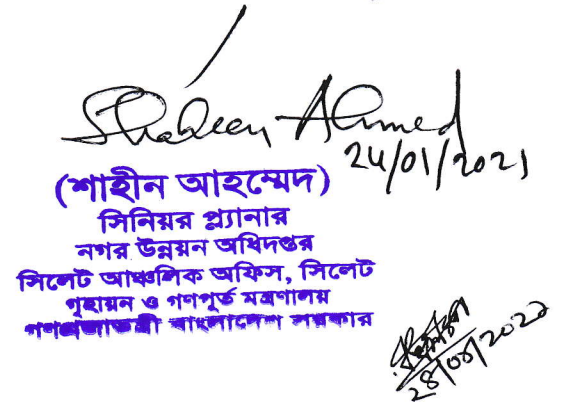 Shaheen Ahmed
24/01/2021
(শাহীন আহম্মেদ)
সিনিয়র প্ল্যানার
নগর উন্নয়ন অধিদপ্তর
সিলেট আঞ্চলিক অফিস, সিলেট
গৃহায়ন ও গণপূর্ত মন্ত্রণালয়
গণপ্রজাতন্ত্রী বাংলাদেশ সরকার